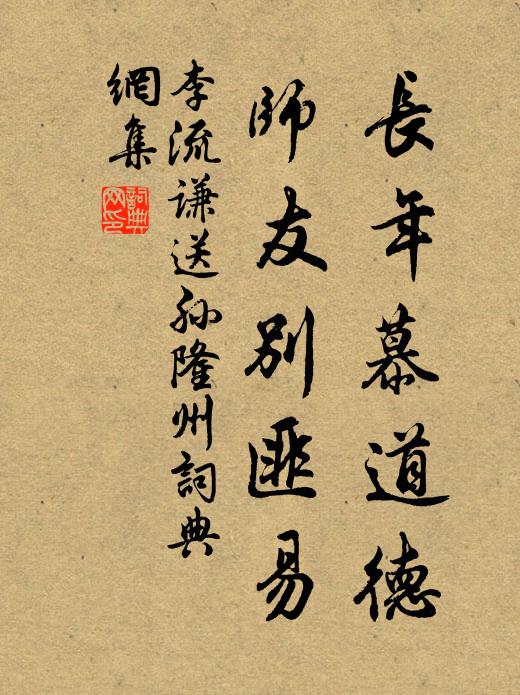 長年慕道德
師友別匪易
李流謙送孙隆州詞典
網集
詞典
網印